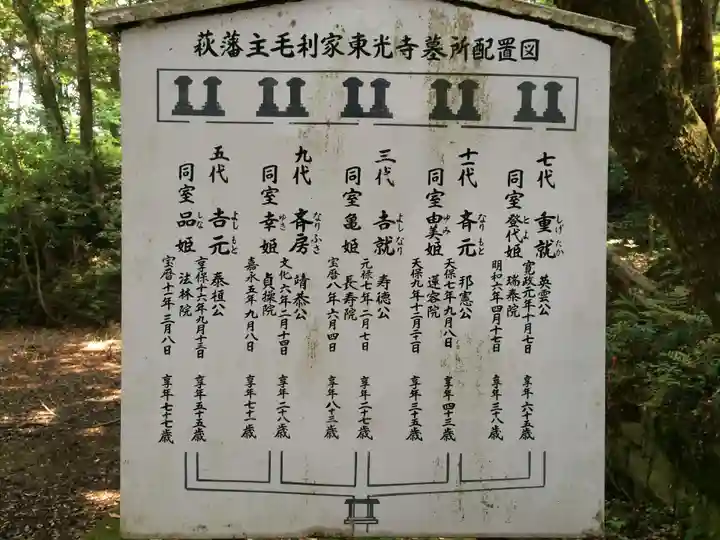 萩藩主毛利家東光寺墓所配置図
七代 重就 しげたか 英雲公 寛政元年十月七日 享年六十五歳
同室 登代姫 とよ 瑞泰院 明和六年四月十七日 享年三十八歳
十一代 斉元 なりもと 邦憲公 天保七年九月八日 享年四十三歳
同室 由美姫 ゆみ 蓮容院 天保九年十二月二十一日 享年三十五歳
三代 吉就 よしなり 寿徳公 元禄七年二月七日 享年二十七歳
同室 亀姫 長寿院 宝暦八年六月四日 享年八十三歳
九代 斉房 なりふさ 靖恭公 文化六年二月十四日 享年二十八歳
同室 幸姫 ゆき 貞操院 嘉永五年九月八日 享年七十一歳
五代 吉元 よしもと 泰桓公 享保十六年九月十三日 享年五十五歳
同室 品姫 しな 法林院 宝暦十一年三月八日 享年七十七歳